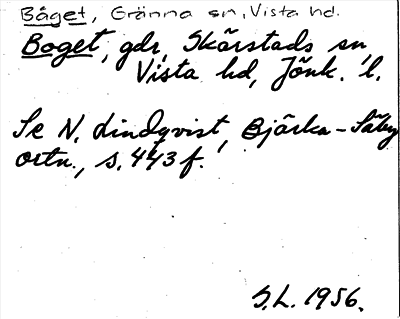 Båget, Gränna sn, Vista hd.
Boget, gdr, Skärstads sn,
Vista hd, Jönk. l.
Se N. Lindqvist, Bjärka-Säby
ortn., s. 443 f.
S.L. 1956.